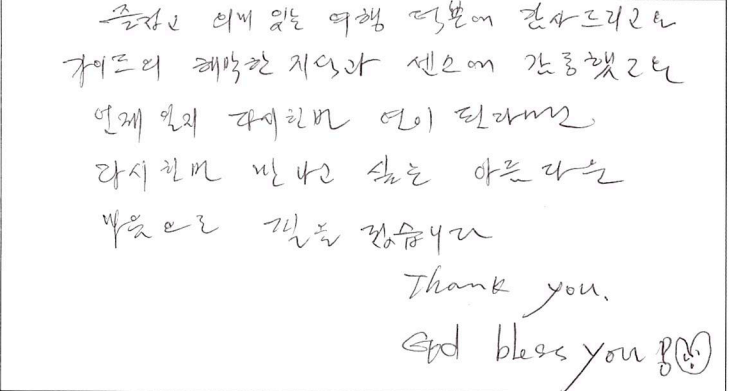 즐겁고 의미 있는 여행 덕분에 감사드리고요
가이드의 해박한 지식과 센스에 감동했고요
언제 일지 다시한번 연이 된다면
다시 한번 만나고 싶는 아름다운
마음으로 글을 적었습니다
Thank you.
God bless you